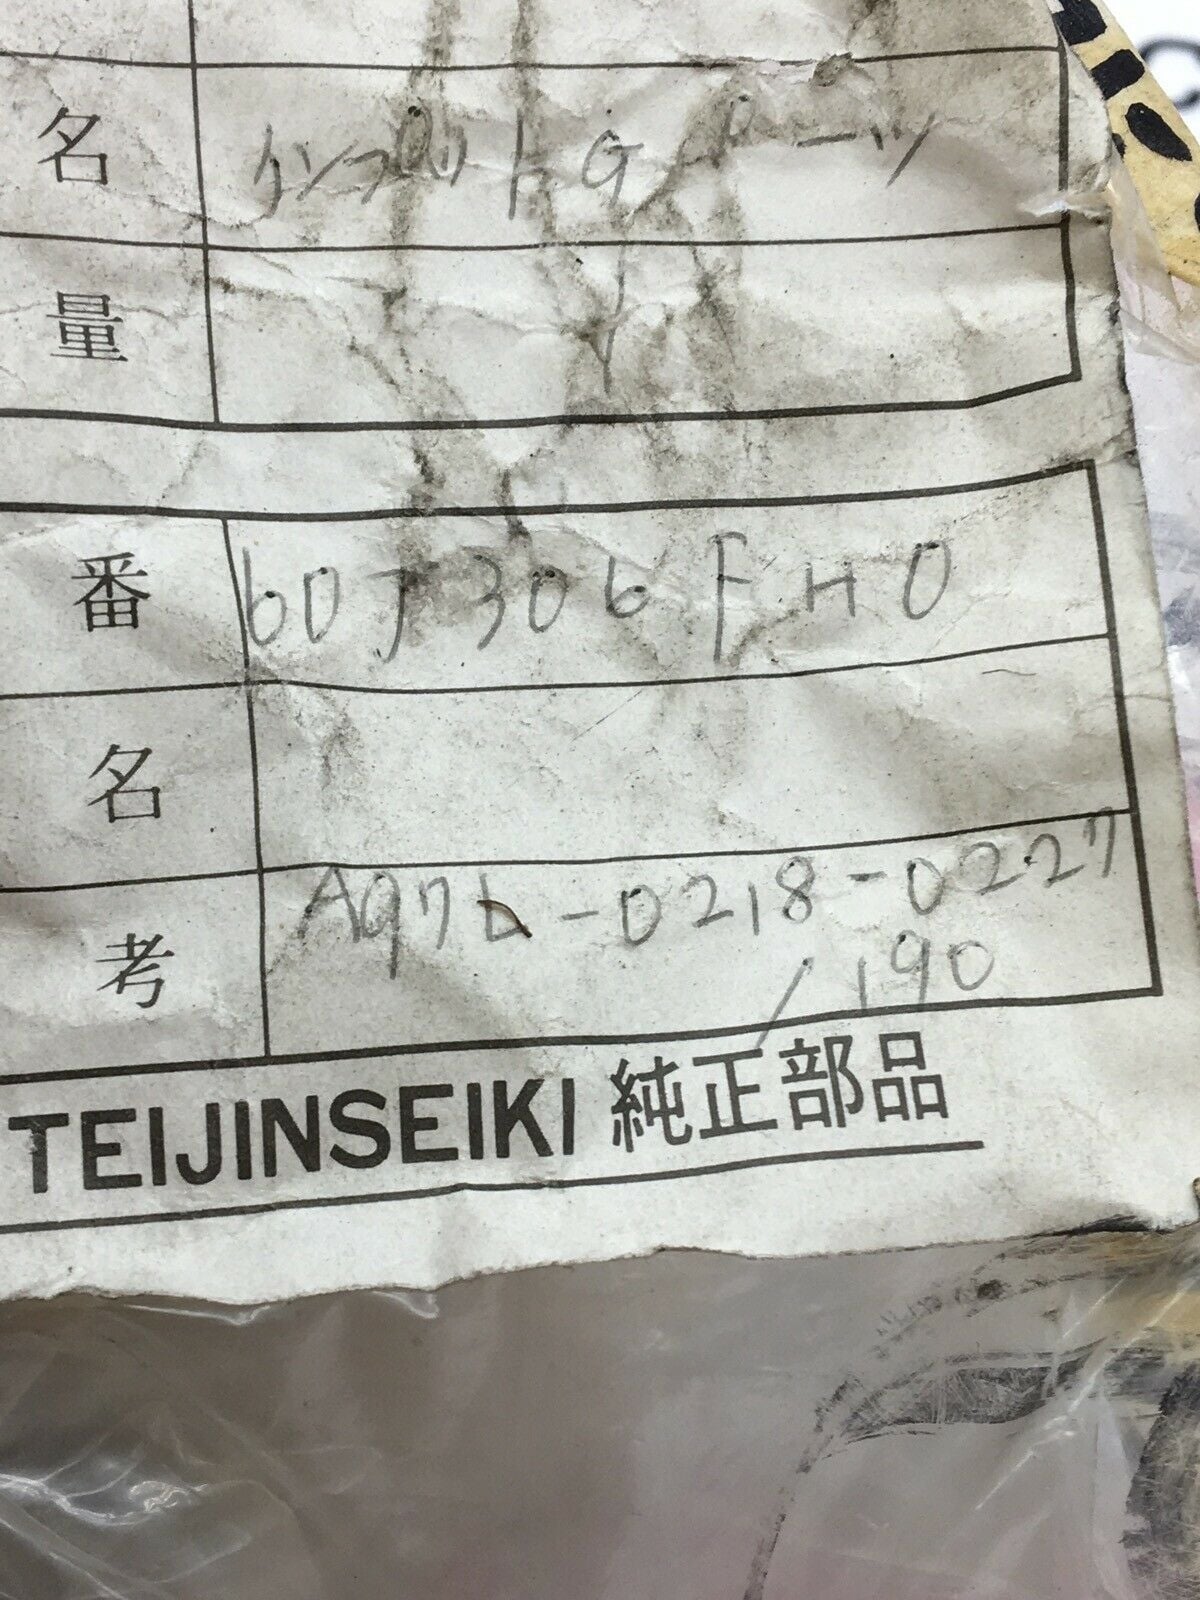 名 インプットGパーツ
量 1
番 60J306FH0
名
考 A97L-0218-0227
/190
TEIJINSEIKI 純正部品